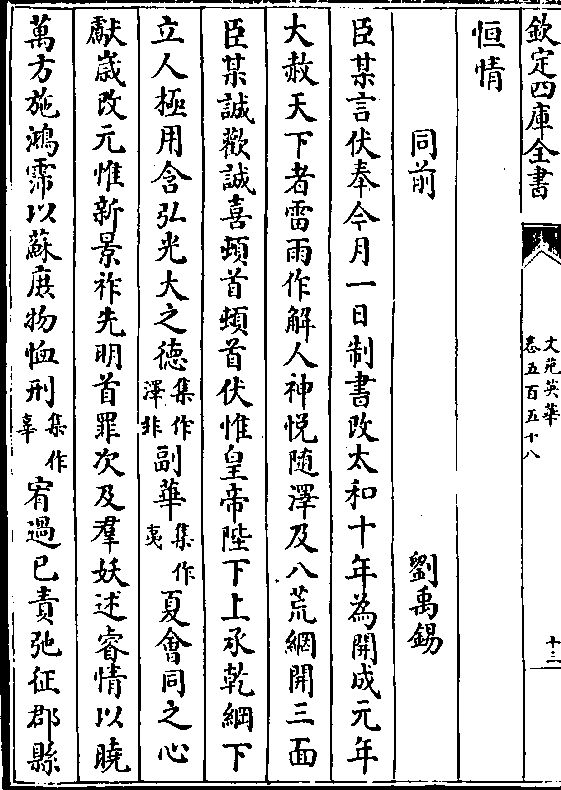 欽定四庫全書
文苑英華
卷五百五十八
十三
恒情
同前 劉禹錫
臣某言伏奉今月一日制書改太和十年為開成元年
大赦天下者雷雨作解人神悅随澤及八荒網開三面
臣某誠歡誠喜頓首頓首伏惟皇帝陛下上承乾綱下
立人極用含弘光大之德集作澤非副華集作夷夏會同之心
獻歳改元惟新景祚先明首罪次及羣妖述睿情以曉
萬方施鴻霈以蘇庻物恤刑集作辜宥過已責弛征郡縣